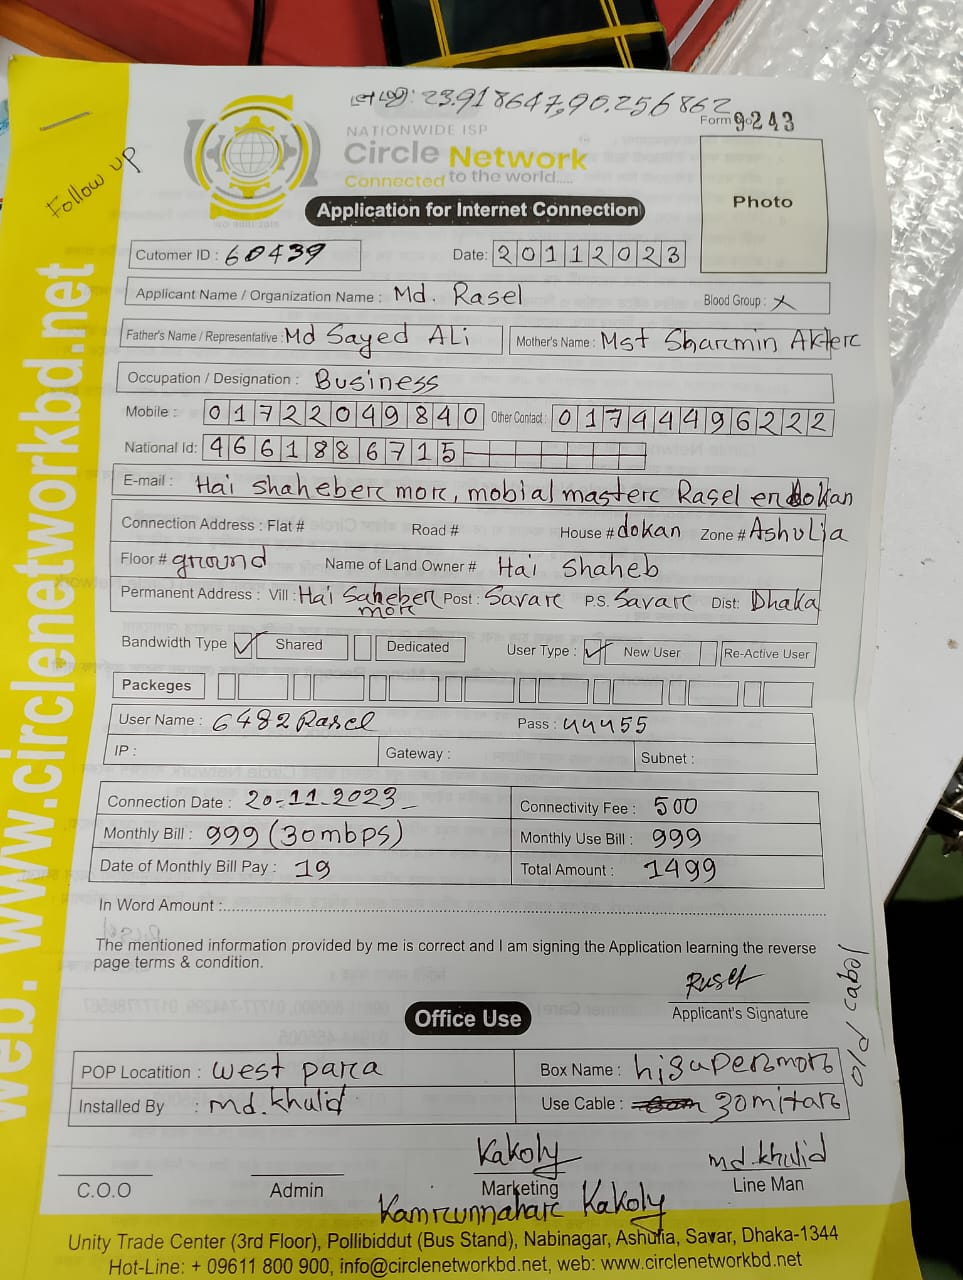 লেলগুঃ 23.918647,90.256862
Form 9243
NATIONWIDE ISP
Circle Network
Connected to the world.....
ISO 9001:2015
Follow up
Application for Internet Connection
Photo
Cutomer ID : 60439 Date: 20112023
Applicant Name / Organization Name : Md. Rasel Blood Group : X
Father's Name / Representative : Md Sayed ALi Mother's Name : Mst Sharmin Akter
Occupation / Designation : Business
Mobile : 01722049840 Other Contact : 01744496222
National Id: 4661886715
E-mail : Hai shaheber mor, mobial master Rasel er dokan
Connection Address : Flat # Road # House # dokan Zone # Ashulia
Floor # ground Name of Land Owner # Hai shaheb
Permanent Address : Vill : Hai Saheber mor Post : Savar P.S. Savar Dist: Dhaka
Bandwidth Type ✓ Shared Dedicated User Type : ✓ New User Re-Active User
Packeges
User Name : 6482Rasel Pass : 44455
IP : Gateway : Subnet :
Connection Date : 20-11-2023 Connectivity Fee : 500
Monthly Bill : 999 (30mbps) Monthly Use Bill : 999
Date of Monthly Bill Pay : 19 Total Amount : 1499
In Word Amount :
The mentioned information provided by me is correct and I am signing the Application learning the reverse
page terms & condition.
Rusel
Applicant's Signature
old cabol
Office Use
POP Locatition : west para Box Name : higapersmor
Installed By : md.khulid Use Cable : 30mitar
Kakoly md.khulid
C.O.O Admin Marketing Line Man
Kamrunnahar Kakoly
Unity Trade Center (3rd Floor), Pollibiddut (Bus Stand), Nabinagar, Ashulia, Savar, Dhaka-1344
Hot-Line: + 09611 800 900, info@circlenetworkbd.net, web: www.circlenetworkbd.net
web. www.circlenetworkbd.net